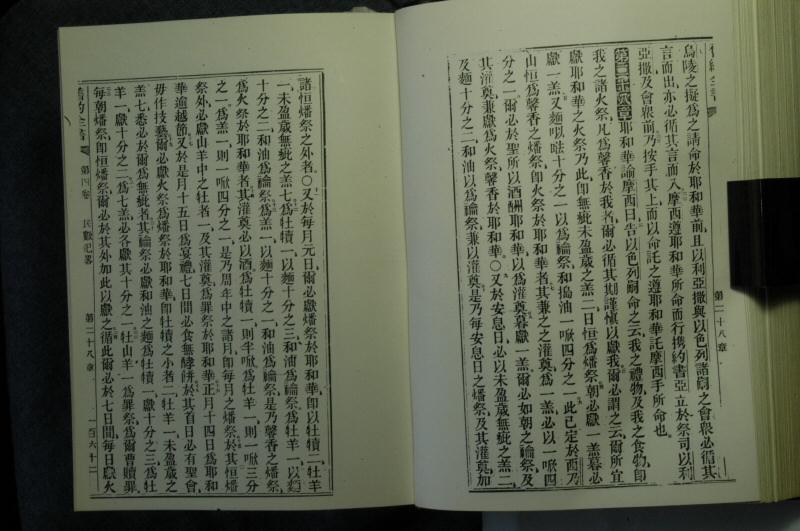 第二十八章
烏陵之擬爲之請命於耶和華前、且以利亞撒與以色列諸嗣之會衆必循其
言而出、亦必循其言而入、摩西遵耶和華所命而行、攜約書亞立於祭司以利
亞撒及會衆前、乃按手其上、而以命託之、遵耶和華託摩西手所命也。
第二十八章 耶和華諭摩西曰、告以色列嗣命之云、我之禮物及我之食物、卽
我之火祭、凡爲馨香於我者、爾必循其期謹慎以獻我、爾必謂之云、爾所宜
獻耶和華之火祭乃此、卽無疵未盈歲之羔二、日恒爲燔祭、朝必獻一羔、暮必
獻一羔、又麵以㕸十分之一、以爲禴祭、和搗油一㗀四分之一、此已定於西乃
山、恒爲馨香之燔祭、卽火祭於耶和華者、其兼之之灌奠、爲一羔、必以一㗀四
分之一、爾必於聖所以酒酬耶和華、以爲灌奠、暮獻一羔、爾必如朝之禴祭、及
其灌奠、兼獻爲火祭、馨香於耶和華、○又於安息日、必以未盈歲無疵之羔二、
及麵十分之二、和油以爲禴祭、兼以灌奠、是乃每安息日之燔祭、及其灌奠、加
諸恒燔祭之外者、○又於每月元日、爾必獻燔祭於耶和華、卽以牡犢二、牡羊
一、未盈歲無疵之羔七、爲牡犢一、以麵十分之三、和油爲禴祭、爲牡羊一、以麵
十分之二、和油爲禴祭、爲羔一、以麵十分之一、和油爲禴祭、是乃馨香之燔祭、
爲火祭於耶和華者、其灌奠、必以酒、爲牡犢一、則半㗀、爲牡羊一、則一㗀三分
之一、爲羔一、則一㗀四分之一、是乃周年中之諸月、卽每月之燔祭、於其恒燔
祭外、必獻山羊中之牡者一、及其灌奠、爲罪祭於耶和華、正月十四日、爲耶和
華逾越節、又於是月十五日爲宴禮、七日間必食無酵餅、於其首日必有聖會、
毋作技藝、爾必獻火祭、爲燔祭於耶和華、卽牡犢之小者二、牡羊一、未盈歲之
羔七、悉必於爾爲無疵者、其禴祭必獻和油之麵、爲牡犢一、獻十分之三、爲牡
羊一、獻十分之二、爲七羔、必各獻其十分之一、牡山羊一爲罪祭、爲爾曹贖罪、
每朝燔祭、卽恒燔祭、爾必於其外、加此以獻之、循此爾必於七日間、每日獻火
舊約全書 第四卷 民數紀畧 第二十八章 一百六十二